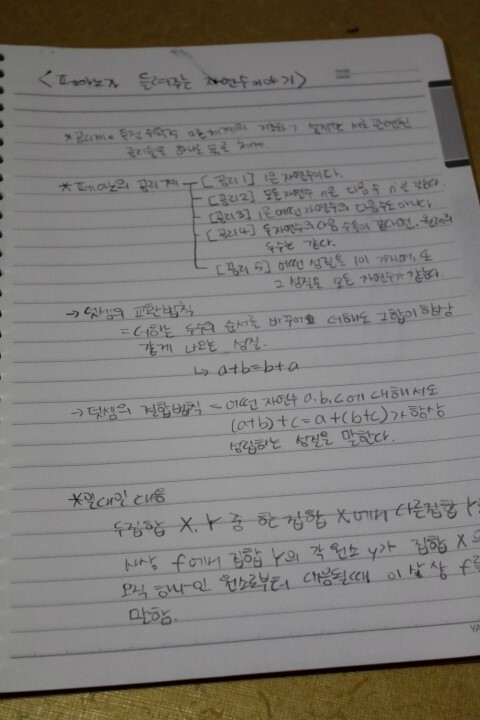 <페아노가 들려주는 자연수 이야기>
*공리계 = 특정 수학적 이론체계의 기초가 설정한 서로 관련된
공리들을 하나로 묶은 체계
*페아노의 공리계 [공리1] 1은 자연수이다.
[공리2] 모든 자연수 n은 다음 수 n'을 갖는다.
[공리3] 1은 어떤 자연수의 다음수도 아니다
[공리4] 두 자연수의 다음 수들이 같다면, 원래의
두수는 같다.
[공리5] 어떤 성질을 1이 가지며, 또
그 성질을 모든 자연수가 갖는다.
→ 덧셈의 교환법칙
= 더하는 두수의 순서를 바꾸어 더해도 그합이 항상
같게 나오는 성질.
↳ a+b=b+a
→ 덧셈의 결합법칙 = 어떤 자연수 a.b.c에 대해서도
(a+b)+c=a+(b+c)가 항상
성립하는 성질을 말한다.
*일대일 대응
두집합 X.Y 중 한 집합 X에서 다른집합 Y로
사상 f에서 집합 Y의 각 원소 y가 집합 X의
오직 하나인 원소로부터 대응될때 이 사상 f를
말함.